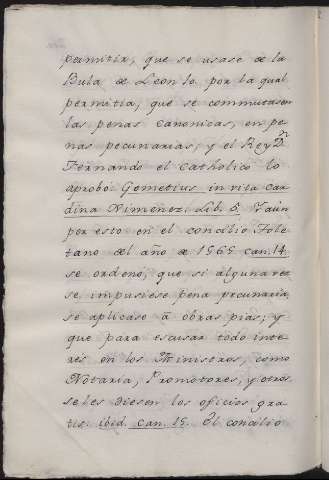 permitir, que se usase de la
Bula de Leon 10. por la qual
permitia, que se commutasen
las penas canonicas, en pe-
nas pecunarias; y el Rey D.n
Fernando el Catholico lo
aprobó. Gometius in vita Car-
dina Ximenez. Lib. 6. Y aún
por esto en el concilio Tole-
tano del año de 1565 can. 14.
se ordenó, que si alguna vez
se impusiese pena pecuniaria
se aplicase á obras pias; y
que para escusar todo inte-
res en los Ministros, como
Notaria, Promotores, y otros
seles diesen los oficios gra-
tis. ibid. can. 15. El concilio